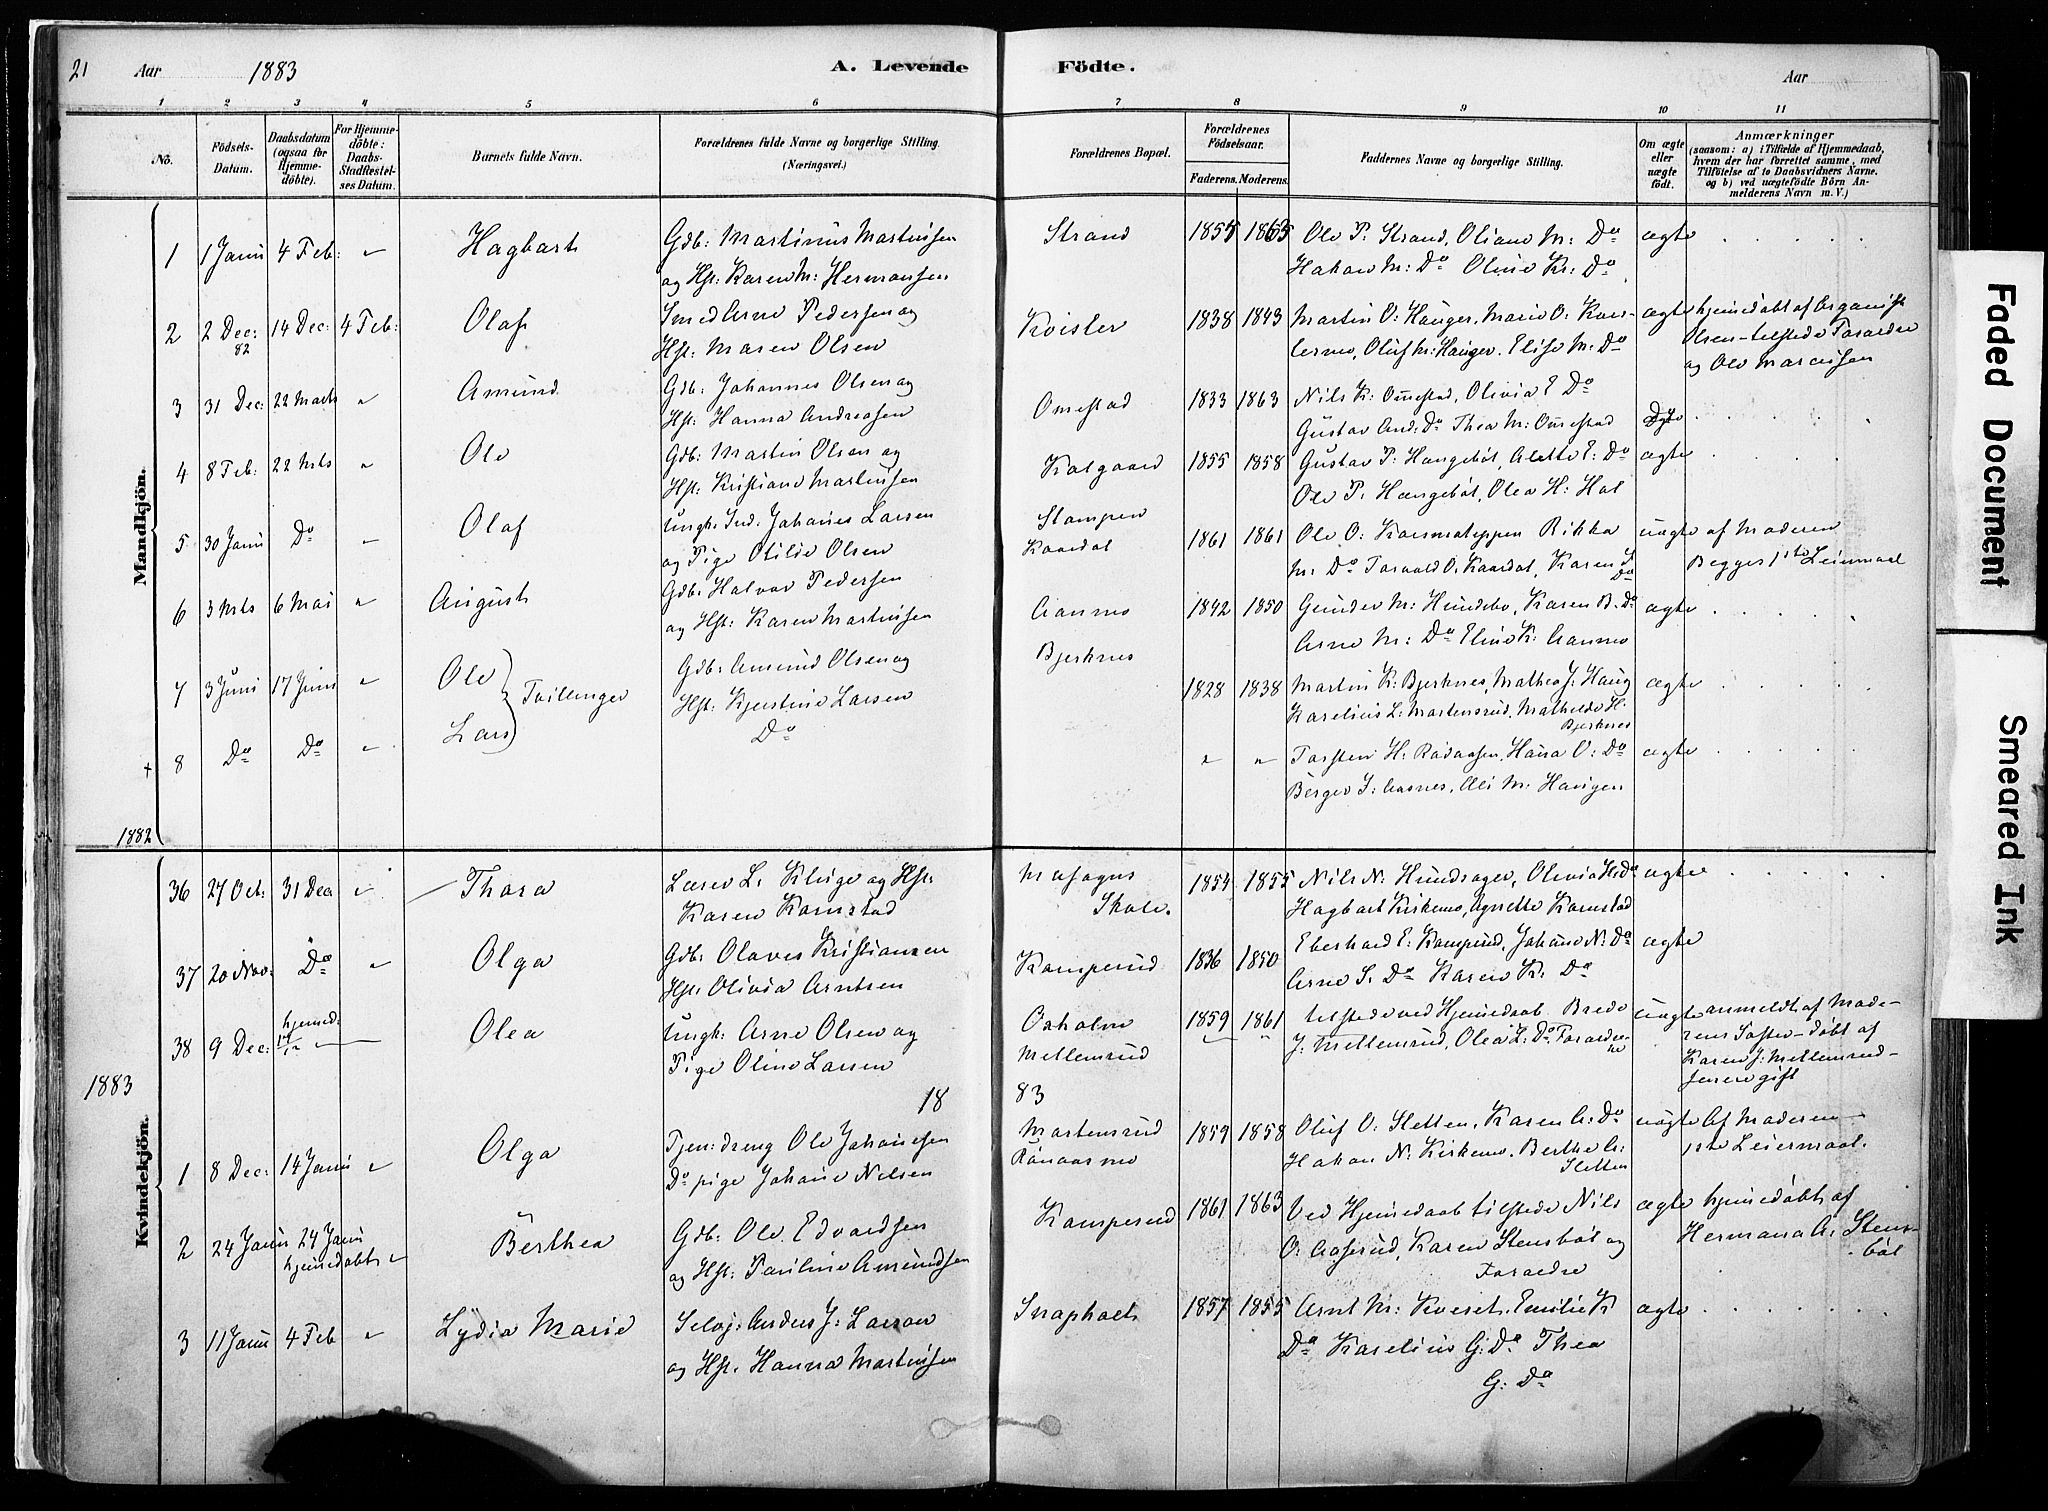 21 Aar 1883 A. Levende Födte. Aar
1 2 3 4 5 6 7 8 9 10 11
No. Födsels-Datum. Daabsdatum (ogsaa for Hjemmedöbte). For Hjemmedöbte: Daabs-Stadfestelses Datum. Barnets fulde Navn. Forældrenes fulde Navne og borgerlige Stilling. (Næringsvei.) Forældrenes Bopæl. Forældrenes Födselsaar. Faderens. Moderens. Faddernes Navne og borgerlige Stilling. Om ægte eller uægte födt. Anmærkninger (saasom: a) i Tilfælde af Hjemmedaab, hvem der har forrettet samme, med Tilföielse af to Daabsvidners Navne. og b) ved uægtefödte Börn Anmelderens Navn m. V.)
Mandkjön.
1 1 Janu 4 Feb: " Hagbart Gdb: Martinus Martinsen Strand 1855 1865 Ole P. Strand, Oliane M: Do ægte
og Hst: Karen M: Hermansen Hakon M: Do Oline Kr: Do
2 2 Dec: 82 14 Dec: 4 Feb: Olaf Smed Arne Pedersen og Kvisler 1838 1843 Martin O: Hauger, Marie O: ægte hjemedøbt af Organist
Hst: Maren Olsen Oluf M: Hauger. Elise M: Do Olsen - tilstede Foraedre
og Ole
3 31 Dec: 22 Marts " Amund Gdb: Johannes Olsen og Omestad 1833 1863 Nils K: Omestad, Olivia E Do ægte
Hst: Hanna Andreasen Gustav And: Do Thea M: Omestad
4 8 Feb: 22 Mts " Ole Gdb: Martin Olsen og Kalgaard 1855 1858 Gustav P: Haugebøl, E: Do ægte
Hst: Kristiane Martinsen Ole P: Haugebøl, Olea H: Hol
5 30 Janu Do " Olaf Ungk. Ind. Johanes Larsen Stampen 1861 1861 Ole O: Rikka uægte af Moderen
og Pige Otilde Olsen Kaardal M: Do Torvald O: Kaardal, Karen S Do Begges 1ste Leiermaal
6 3 Mts 6 Mai " August Gdb: Halvor Pedersen Aanmo 1842 1850 Gunder M: Hundebo, Karen B: Do ægte
og Hst: Karen Martinsen Arne M: Do Eline K: Aanmo
7 3 Juni 17 Juni " Ole Tvillinger Gdb: Amund Olsen og Bjerknes 1828 1838 Martin K: Bjerknes, Mathea J: Haug ægte
Hst: Kjerstine Larsen Karelius L: Martensrud, Mathilde H. Bjerknes
8 Do Do " Lars Do " " Torsten H: Hana O: Do ægte
Berger S: Aasnes, Eli M: Haugen
1882
36 27 Oct: 31 Dec " Thora Lærer L. Kluge og Hst: 1854 1855 Nils N: Hundsager, Olivia H: Do ægte
Karen Karnstad Skole. Hagbart Kirkemo, Agnette Karnstad
37 20 Nov: Do " Olga Gdb: Olaves Kristiansen Kamperud 1836 1850 Eberhard E: Kamperud, Johane N: Do ægte
Hst: Olivia Arntsen Arne S. Do Karen K: Do
38 9 Dec: hjemed: 14/12 Olea Ungk: Arne Olsen og Oxholm 1859 1861 tilstede ved Hjemedaab Brede uægte anmeldt af Mode-
Pige Oline Larsen Mellemrud J: Mellemrud, Olea L: Do Foraedrene rens Søster - døbt af
Karen J: Mellemrud-
1883 18 83
Kvindekjön.
1 8 Dec: 14 Janu " Olga Tjen: dreng Ole Johanesen Martensrud 1859 1858 Oluf O: Sletten, Karen A: Do uægte Af Moderen
Do pige Johane Nelsen Hakon N: Kirkemo. Berthe A: Sletten 1ste Leiermaal.
2 24 Janu 24 Janu hjemedøbt " Berthea Gdb: Ole Edvardsen Kamperud 1861 1863 Ved Hjemedaab tilstede Nils ægte hjemedøbt af
og Hst: Pauline Amundsen O: Aaserud, Karen Stensbøl og Hermana A: Stens-
Foraedre bøl
3 11 Janu 4 Feb " Lydia Marie Selvj: Anders J: Larsen Snapholt 1857 1855 Arnt M: Kveset. Emilie K ægte
og Hst. Hanna Martinsen Do Karelius G: Do Thea
G: Do
Faded Document
Smeared Ink